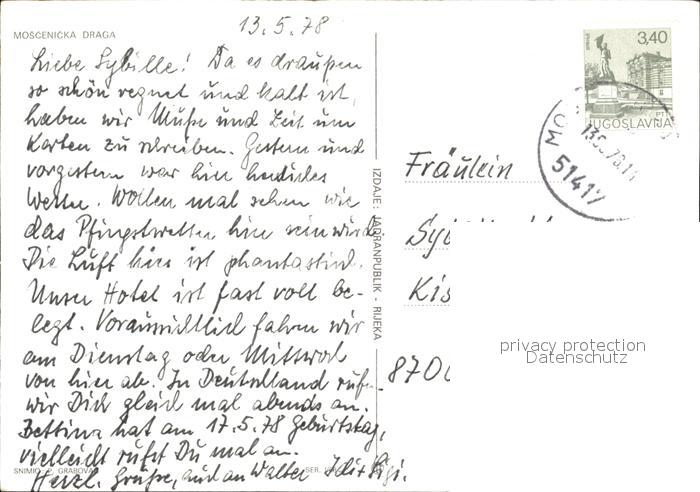 13.5.78
MOŠĆENIČKA DRAGA
Liebe Sybille! Da es draußen
so schön regnet und kalt ist,
haben wir Muße und Zeit um
Karten zu schreiben. Gestern und
vorgestern war hier herrliches
Wetter. Wollen mal sehen wie
das Pfingstwetter hier sein wird.
Die Luft hier ist phantastisch.
Unser Hotel ist fast voll be-
legt. Voraussichtlich fahren wir
am Dienstag oder Mittwoch
von hier ab. In Deutschland rufen
wir Dich gleich mal abends an.
Bettina hat am 17.5.78 Geburtstag,
vielleicht rufst Du mal an.
Herzl. Grüße, auch an Walter
SNIMIO: P. GRABOVAC
IZDAJE: JADRANPUBLIK - RIJEKA
3,40
PTT
JUGOSLAVIJA
51417
Fräulein
Kis
8700
privacy protection
Datenschutz